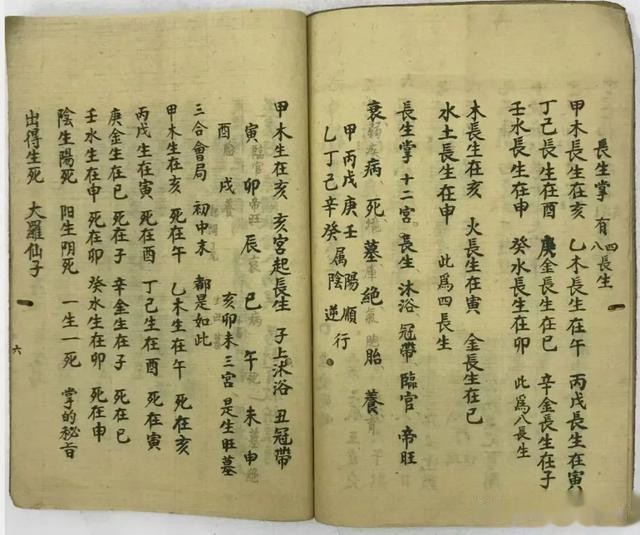 長生掌 有四八長生
甲木長生在亥 乙木長生在午 丙戊長生在寅
丁己長生在酉 庚金長生在巳 辛金長生在子
壬水長生在申 癸水長生在卯 此爲八長生
木長生在亥 火長生在寅 金長生在巳
水土長生在申 此爲四長生
長生掌十二宮。長生 沐浴 冠帶 臨官 帝旺
衰 病 死 墓 絕 胎 養
甲丙戊庚壬 屬陽順行
乙丁己辛癸 屬陰逆行。
甲木生在亥 亥宮起長生 子上沐浴 丑冠帶
寅 卯 辰 巳 午 未 申
酉 戌 亥卯未三宮 是生旺墓
三合會局 初中末 都是如此
甲木生在亥 死在午 乙木生在午 死在亥
丙戊生在寅 死在酉 丁己生在酉 死在寅
庚金生在巳 死在子 辛金生在子 死在巳
壬水生在申 死在卯 癸水生在卯 死在申
陰生陽死 阳生阴死 一生一死 掌的秘旨
出得生死 大羅仙子
六